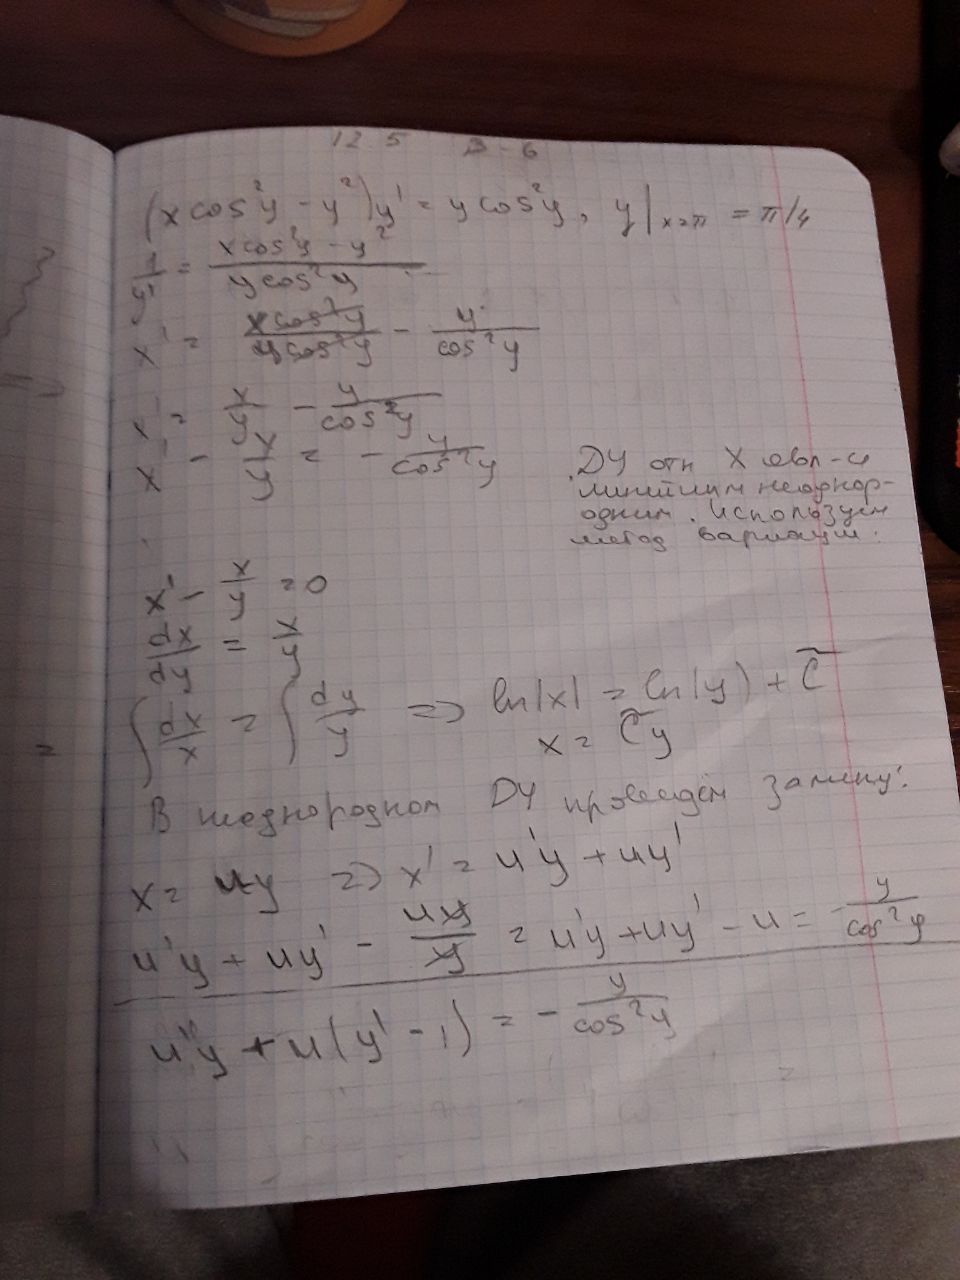 12.5 В-6
(x cos²y - y²)y' = y cos²y, y|x=π = π/4
1/y' = (x cos²y - y²)/(y cos²y)
x' = (x cos²y)/(y cos²y) - y/(cos²y)
x' = x/y - y/(cos²y)
x' - x/y = - y/(cos²y)
ДУ отн x явл-ся
линейным неоднор-
одним. Используем
метод вариации:
x' - x/y = 0
dx/dy = x/y
∫dx/x = ∫dy/y => ln|x| = ln(y) + C̃
x = C̃y
В неоднородном ДУ проведём замену:
x = uy => x' = u'y + uy'
u'y + uy' - uy/y = u'y + uy' - u = - y/(cos²y)
u'y + u(y' - 1) = - y/(cos²y)